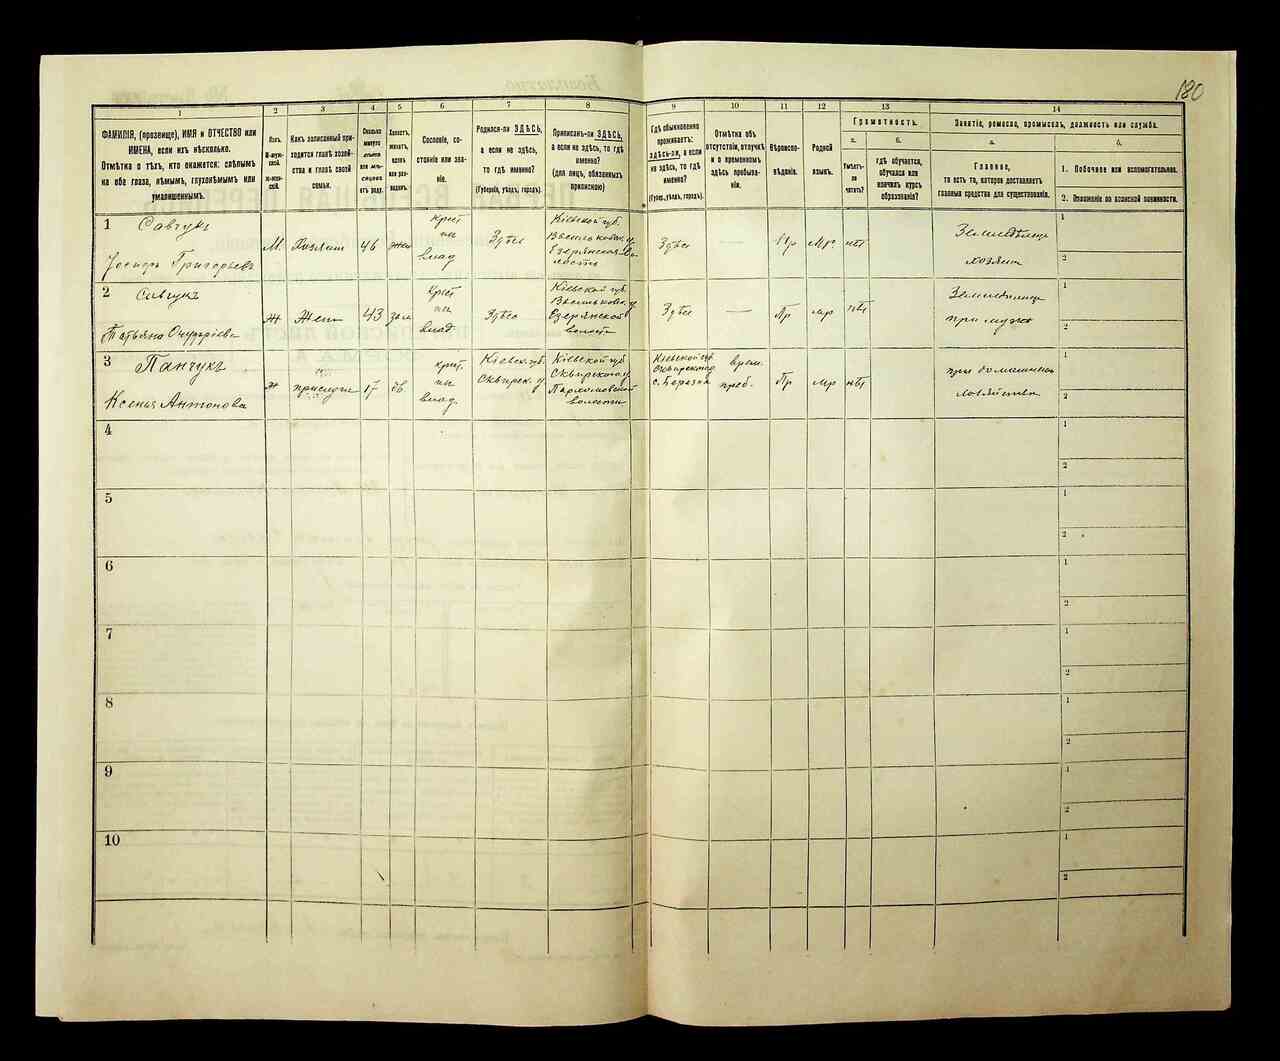 180
1
2
3
4
5
6
7
8
9
10
11
12
13
14
ФАМИЛІЯ, (прозвище), ИМЯ и ОТЧЕСТВО или
ИМЕНА, если ихъ нѣсколько.
Отмѣтка о тѣхъ, кто окажется: слѣпымъ
на оба глаза, нѣмымъ, глухонѣмымъ или
умалишеннымъ.
Полъ.
М-муж-
ской.
Ж-жен-
ской.
Какъ записанный при-
ходится главѣ хозяй-
ства и главѣ своей
семьи.
Сколько
минуло
лѣтъ
или мѣ-
сяцевъ
отъ роду.
Холостъ,
женатъ,
вдовъ
или раз-
веденъ.
Сословіе, со-
стояніе или зва-
ніе.
Родился-ли ЗДѢСЬ,
а если не здѣсь,
то гдѣ именно?
(Губернія, уѣздъ, городъ).
Приписанъ-ли ЗДѢСЬ,
а если не здѣсь, то гдѣ
именно?
(для лицъ, обязанныхъ
припискою)
Гдѣ обыкновенно
проживаетъ:
здѣсь-ли, а если
не здѣсь, то гдѣ
именно?
(Губер., уѣздъ, городъ).
Отмѣтка объ
отсутствіи, отлучкѣ
и о временномъ
здѣсь пребыва-
ніи.
Вѣроиспо-
вѣданіе.
Родной
языкъ.
Грамотность.
а.
Умѣетъ-
ли
читать?
б.
гдѣ обучается,
обучался или
кончилъ курсъ
образованія?
Занятіе, ремесло, промыселъ, должность или служба.
а.
Главное,
то есть то, которое доставляетъ
главныя средства для существованія.
б.
1. Побочное или вспомогательное.
2. Положеніе по воинской повинности.
1
Савчукъ
Іосифъ Григорьевъ
М.
Хозяин
46
жен
крест
из
влад
Здѣсь
Кіевской губ.
Васильковск. у
Езерянской во
лости
Здѣсь
—
Пр
Мр.
нѣт
Земледѣлецъ
хозяинъ
1
2
2
Савчукъ
Татьяна
Ж
Жена
43
зам
крест
из
влад.
Здѣсь
Кіевской губ.
Васильковск. у
Езерянской
волости
Здѣсь
—
Пр
мр
нѣт
при мужѣ
1
2
3
Панчукъ
Ксенія Антонова
Ж
прислуга
17
дѣв
крест.
из
влад.
Кіевск. губ.
Сквирск. у
Кіевской губ
Сквирского у
Пархомовской
волости
Кіевской губ
с. Березна
врем.
преб.
Пр
мр
нѣт
при домашнемъ
хозяйствѣ
1
2
4
1
2
5
1
2
6
1
2
7
1
2
8
1
2
9
1
2
10
1
2